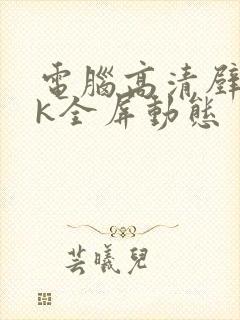 電腦高清壁
K全屏動態
芸曦兒